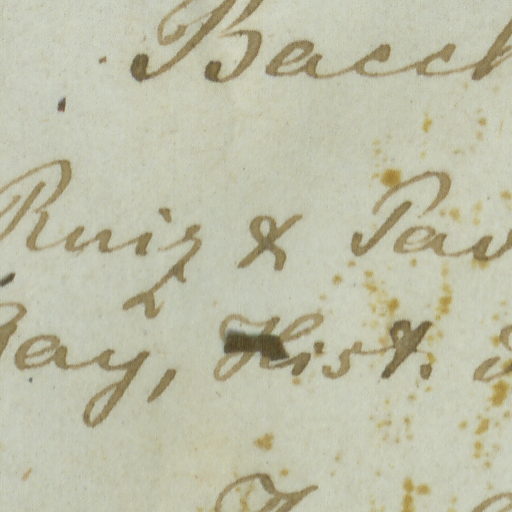 Bacch
Ruiz & Pav
Gay, Hist.